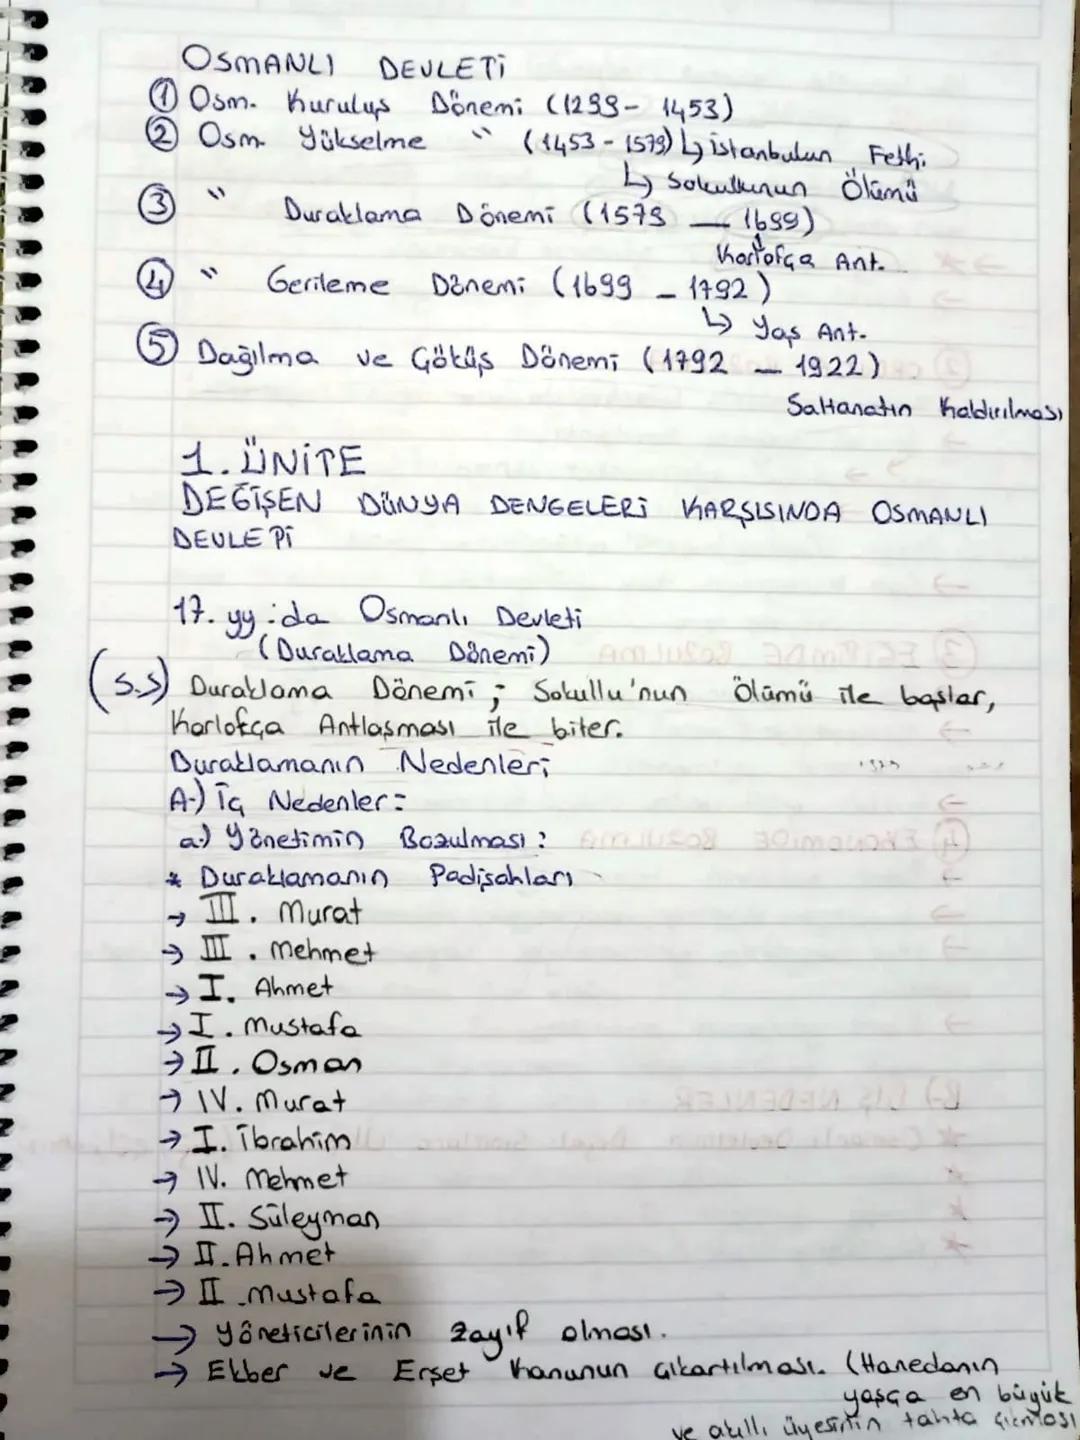 OSMANLI DEVLETİ
① Osm. Kuruluş Dönemi (1299 - 1453)
② Osm. Yükselme " (1453 - 1579) ↳ İstanbulun Fethi
↳ Sokullunun Ölümü
③ " Duraklama Dönemi (1579 — 1699)
↓ Karlofça Ant.
④ " Gerileme Dönemi (1699 - 1792)
↳ Yaş Ant.
⑤ Dağılma ve Çöküş Dönemi (1792 - 1922)
Saltanatın Kaldırılması
1. ÜNİTE
DEĞİŞEN DÜNYA DENGELERİ KARŞISINDA OSMANLI
DEVLETİ
17. yy'da Osmanlı Devleti
(Duraklama Dönemi)
(S.S) Duraklama Dönemi; Sokullu'nun Ölümü ile başlar,
Karlofça Antlaşması ile biter.
Duraklamanın Nedenleri
A-) İç Nedenler:
a) Yönetimin Bozulması:
* Duraklamanın Padişahları
→ III. Murat
→ III. Mehmet
→ I. Ahmet
→ I. Mustafa
→ II. Osman
→ IV. Murat
→ I. İbrahim
→ IV. Mehmet
→ II. Süleyman
→ II. Ahmet
→ II. Mustafa
→ Yöneticilerinin zayıf olması.
→ Ekber ve Erşet Kanunun çıkartılması. (Hanedanın
yaşça en büyük
ve akıllı üyesinin tahta çıkması